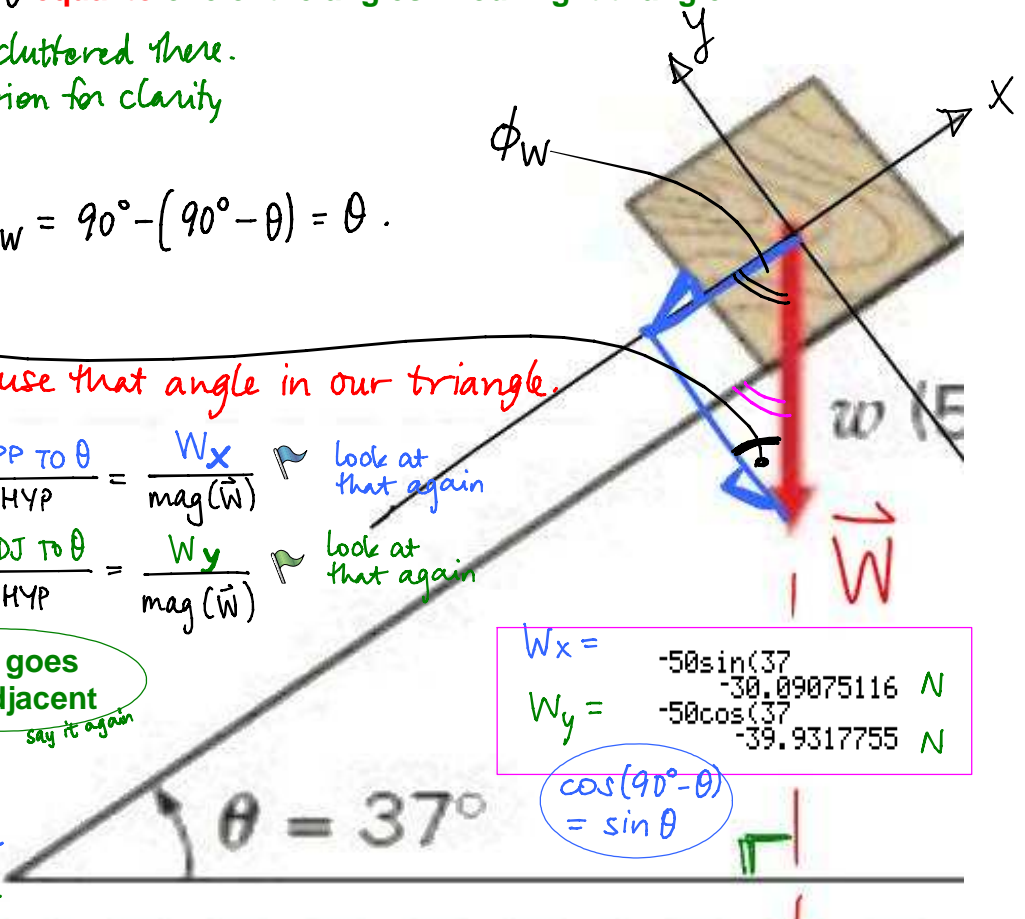 cluttered there.
ion for clarity
y
x
ϕw
w = 90° - (90° - θ) = θ.
use that angle in our triangle.
PP TO θ
HYP
=
Wx
mag(W⃗)
look at
that again
DJ TO θ
HYP
=
Wy
mag(W⃗)
look at
that again
w (5
W⃗
goes
djacent
say it again
Wx =
-50sin(37
-30.09075116 N
Wy =
-50cos(37
-39.9317755 N
cos(90°-θ)
= sin θ
θ = 37°